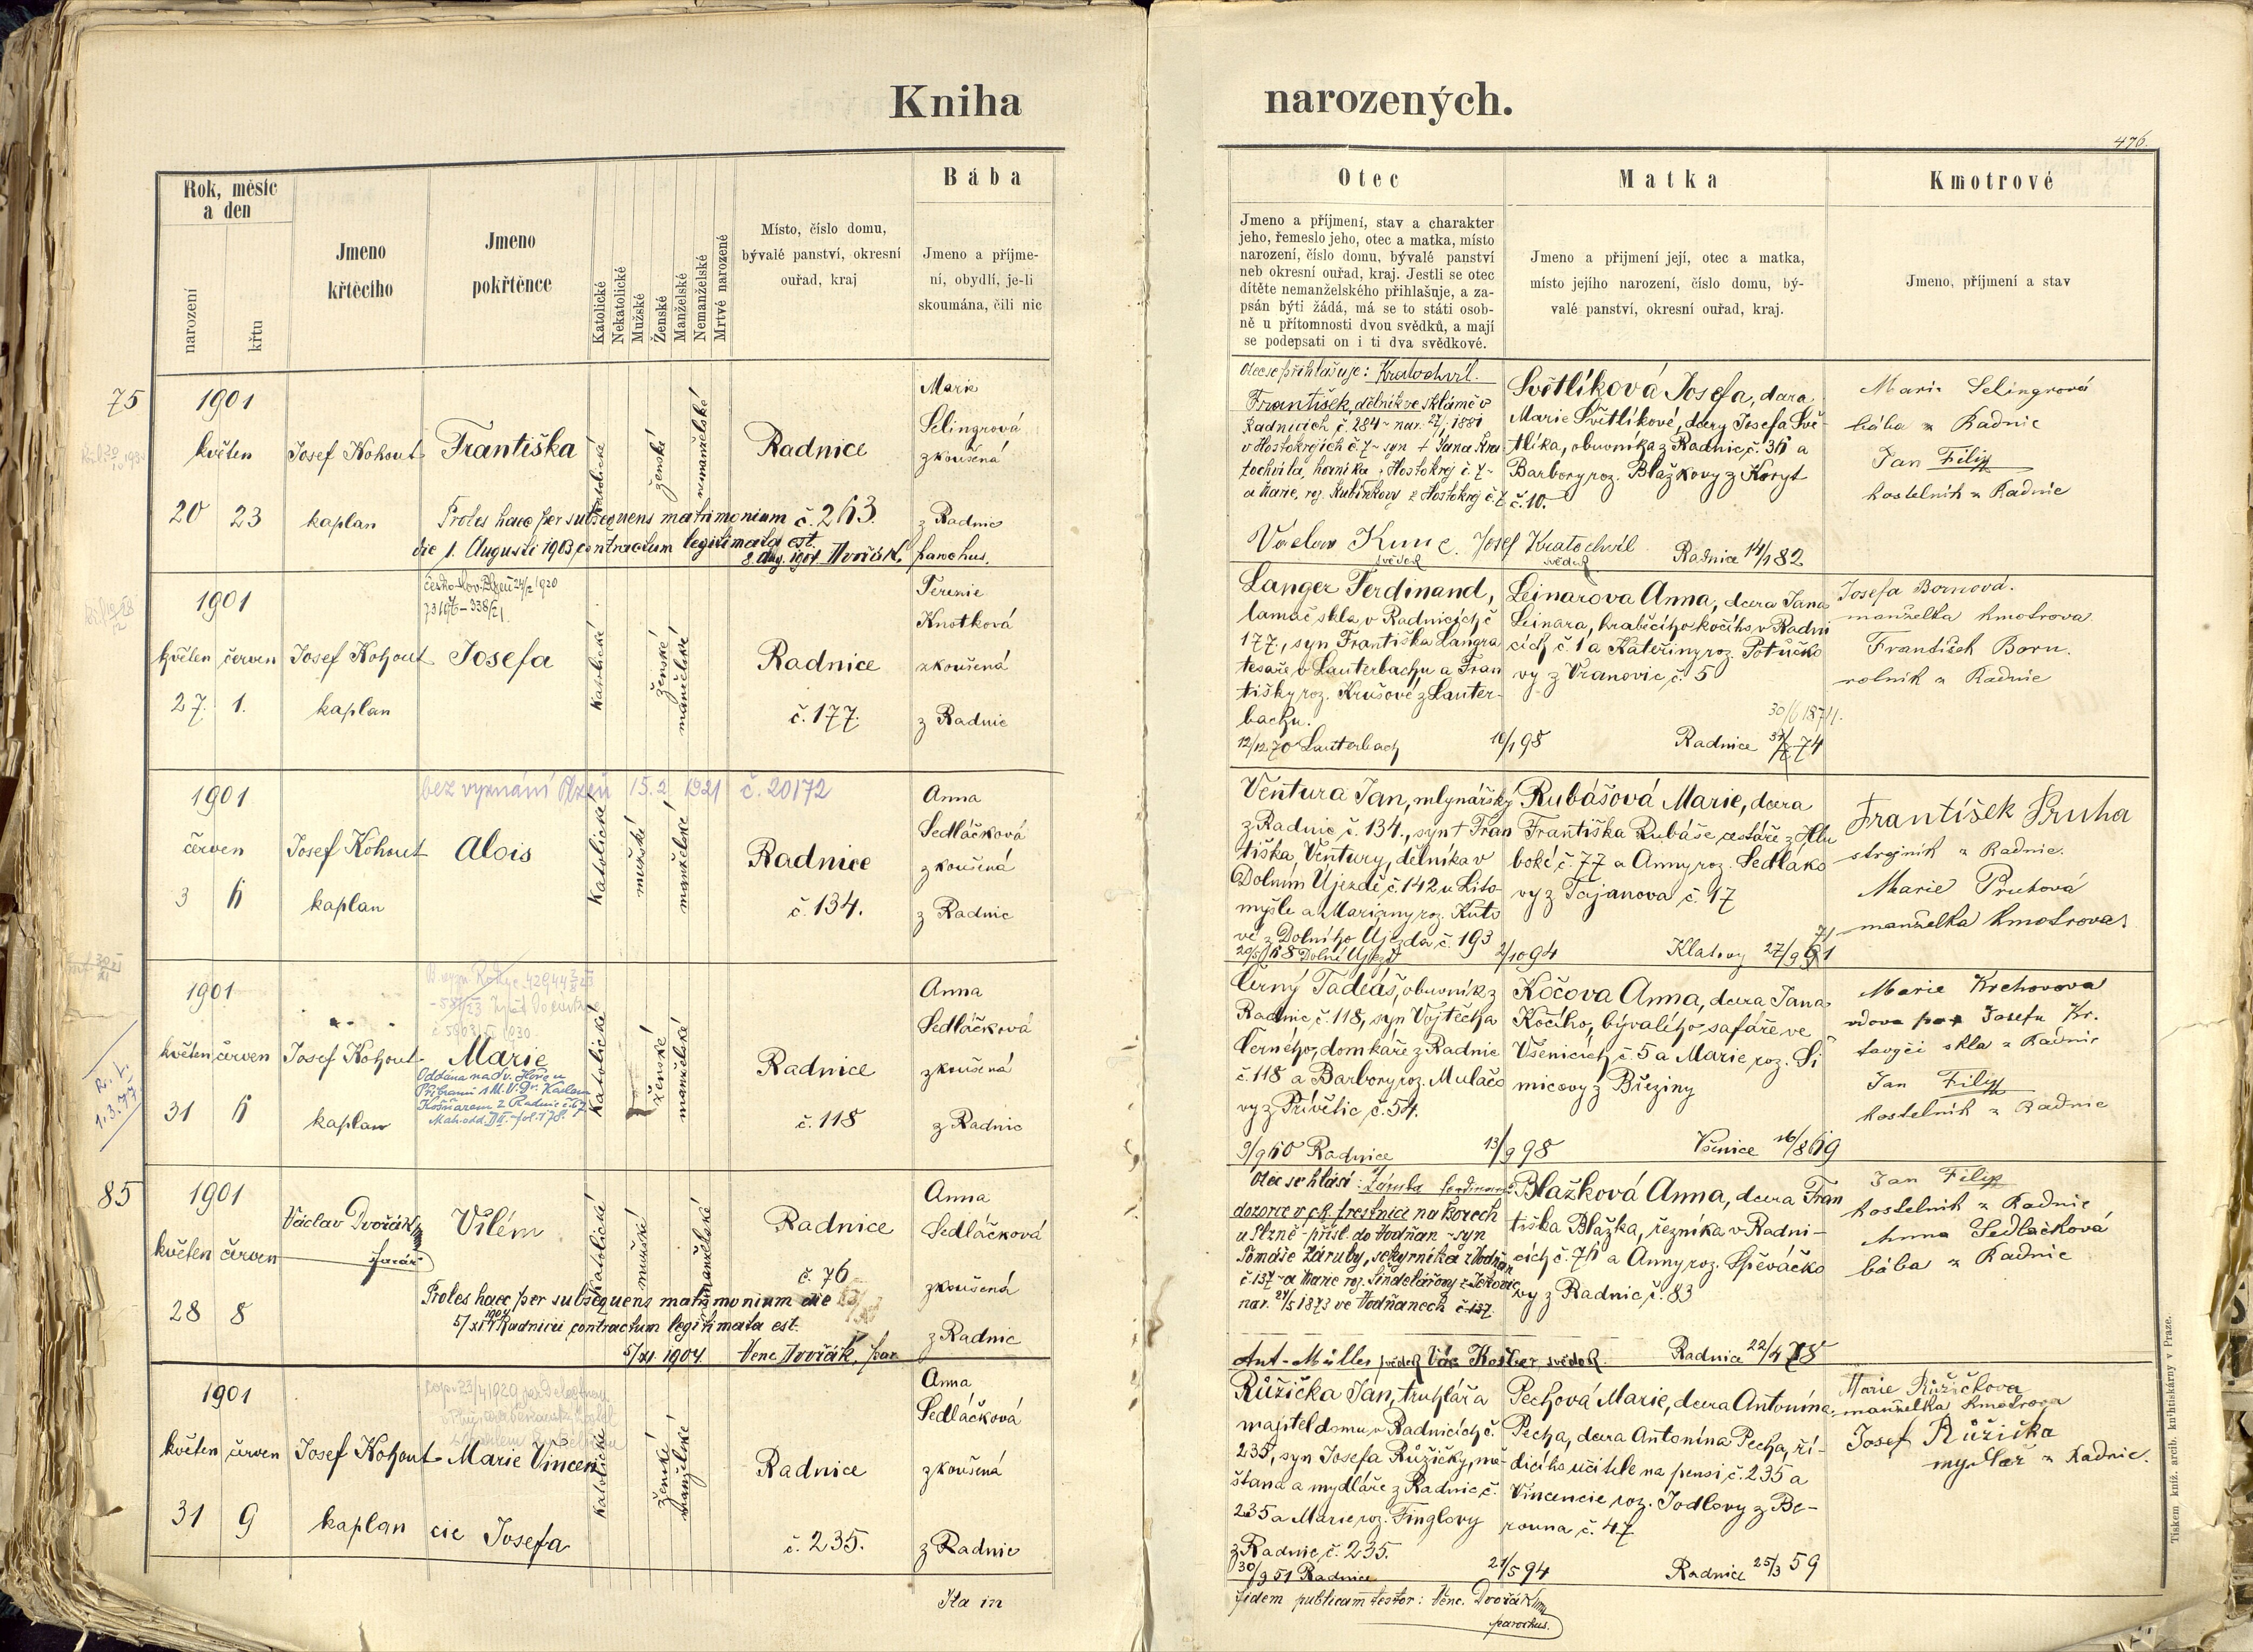 Kniha narozených.
476.
Rok, měsíc a den
narození
křtu
Jmeno křtícího
Jmeno pokřtěnce
Katolické
Nekatolické
Mužské
Ženské
Manželské
Nemanželské
Mrtvě narozené
Místo, číslo domu,
bývalé panství, okresní
ouřad, kraj
Bába
Jmeno a příjme-
ní, obydlí, je-li
skoumána, čili nic
Otec
Jmeno a příjmení, stav a charakter
jeho, řemeslo jeho, otec a matka, místo
narození, číslo domu, bývalé panství
neb okresní ouřad, kraj. Jestli se otec
dítěte nemanželského přihlašuje, a za-
psán býti žádá, má se to státi osob-
ně u přítomnosti dvou svědků, a mají
se podepsati on i ti dva svědkové.
Matka
Jmeno a přijmení její, otec a matka,
místo jejího narození, číslo domu, bý-
valé panství, okresní ouřad, kraj.
Kmotrové
Jmeno, příjmení a stav
75
1901
květen
20 23
Josef Kohout
kaplan
Františka
katolické
ženské
nemanželské
Radnice
č. 263.
Proles haec per subsequens matrimonium
die 1. Augusti 1903 contractum legitimata est.
8. Aug. 1904. Dvořák, parochus.
Marie
Selingrová
zkoušená
z Radnic
Otec se přihlašuje: Kratochvíl
František, dělník ve sklárně v
Radnicích č. 284 - nar. 27/1 1881
v Hostokrejích č. 7 - syn + Jana Kra
tochvíla, horníka z Hostokrej č. 7 -
a Marie, roz. Kubínkovy z Hostokrej č. 7
Václav Kunc. svědek
Josef Kratochvíl svědek
Světlíková Josefa, dcera
Marie Světlíkové, dcery Josefa Svě-
tlíka, obuvníka z Radnic, č. 36 a
Barbory roz. Blažkovy z Koryt
č. 10.
Radnice 14/1 82
Marie Selingrová
bába z Radnic
Jan Filip
kostelník z Radnic
1901
květen červen
27. 1.
Josef Kohout
kaplan
Josefa
katolické
ženské
manželské
Radnice
č. 177.
Terezie
Knotková
zkoušená
z Radnic
Langer Ferdinand,
lamač skla v Radnicích č
177, syn Františka Langra
tesaře v Lauterbachu a Fran
tišky roz. Krušové z Lauter-
bachu.
12/12 70 Lauterbach
10/1 98
Leinarova Anna, dcera Jana
Leinara, hraběcího kočího v Radni
cích č. 1 a Kateřiny roz. Potůčko
vy z Vranovic č. 5
30/6 1874.
Radnice
74
Josefa Bornová.
manželka kmotrova
František Born.
rolník z Radnic
bez vyznání Plzeň 15.2. 1921 č. 20172
1901
červen
3 6
Josef Kohout
kaplan
Alois
katolické
mužské
manželské
Radnice
č. 134.
Anna
Sedláčková
zkoušená
z Radnic
Ventura Jan, mlynářský
z Radnic č. 134., syn + Fran
tiška Ventury, dělníka v
Dolním Újezdě č. 142 u Lito
myšle a Marianny roz. Kuto
vé z Dolního Újezda č. 193
29/5 68 Dolní Újezd
2/10 94
Rubášová Marie, dcera
Františka Rubáše cestáře z Hlu
boké č. 77 a Anny roz. Sedláko
vy z Tajanova č. 17
Klatovy 27/9 71
František Pruha
strojník z Radnic.
Marie Pruhová
manželka kmotrova.
1901
květen červen
31 6
Josef Kohout
kaplan
Marie
Oddána na sv. Hoře u
Příbrami 1.M.V. Dr. Karlem
Košnařem z Radnic č. 67
Mat. odd. III. fol. 178.
R. L.
1.3.77
katolické
ženské
manželské
Radnice
č. 118
Anna
Sedláčková
zkoušená
z Radnic
Černý Tadeáš, obuvník z
Radnic, č. 118, syn Vojtěcha
Černého, domkáře z Radnic
č. 118 a Barbory roz. Mulačo
vy z Přívětic, č. 54.
9/9 60 Radnice
13/9 98
Kočova Anna, dcera Jana
Kočího, bývalého šafáře ve
Všenicích, č. 5 a Marie roz. Ši
micovy z Březiny
Všenice 16/8 69
Marie Krchovova
vdova po + Josefu Kr.
taviči skla z Radnic
Jan Filip
kostelník z Radnic
85
1901
květen červen
28 8
Václav Dvořák
farář
Vilém
katolické
mužské
nemanželské
Radnice
č. 76
Proles haec per subsequens matrimonium die
5/XI 1904 Radnicii contractum legitimata est.
5/XI 1904. Venc. Dvořák, par.
Anna
Sedláčková
zkoušená
z Radnic
Otec se hlásí: Záruba Ferdinand
dozorce v c.k. trestnici na Borech
u Plzně - přísl. do Vodňan - syn
Tomáše Záruby, sekyrníka z Vodňan
č. 137 - a Marie roz. Šindelářovy z
nar. 24/5 1873 ve Vodňanech č. 137.
Ant. Müller svědek Vác. Košler svědek
Blažková Anna, dcera Fran
tiška Blažka, řezníka v Radni-
cích č. 76 a Anny roz. Spěváčko
vy z Radnic, č. 83
Radnice 22/4 78
Jan Filip
kostelník z Radnic
Anna Sedláčková
bába z Radnic
1901
květen červen
31 9
Josef Kohout
kaplan
Marie Vincen
cie Josefa
katolické
ženské
manželské
Radnice
č. 235.
Anna
Sedláčková
zkoušená
z Radnic
Růžička Jan, truhlář a
majitel domu v Radnicích č.
235, syn Josefa Růžičky, mě-
šťana a mydláře z Radnic č.
235 a Marie roz. Finglovy
z Radnic, č. 235.
30/9 51 Radnice
21/5 94
Pechová Marie, dcera Antonína
Pecha, dcera Antonína Pecha, ří-
dícího učitele na pensi č. 235 a
Vincencie roz. Jodlovy z Be-
rouna č. 47
Radnice 25/3 59
Marie Růžičkova
manželka kmotrova
Josef Růžička
mydlář z Radnic.
Ita in
fidem publicam testor: Venc. Dvořák
parochus.
Tiskem kníž. arcib. knihtiskárny v Praze.